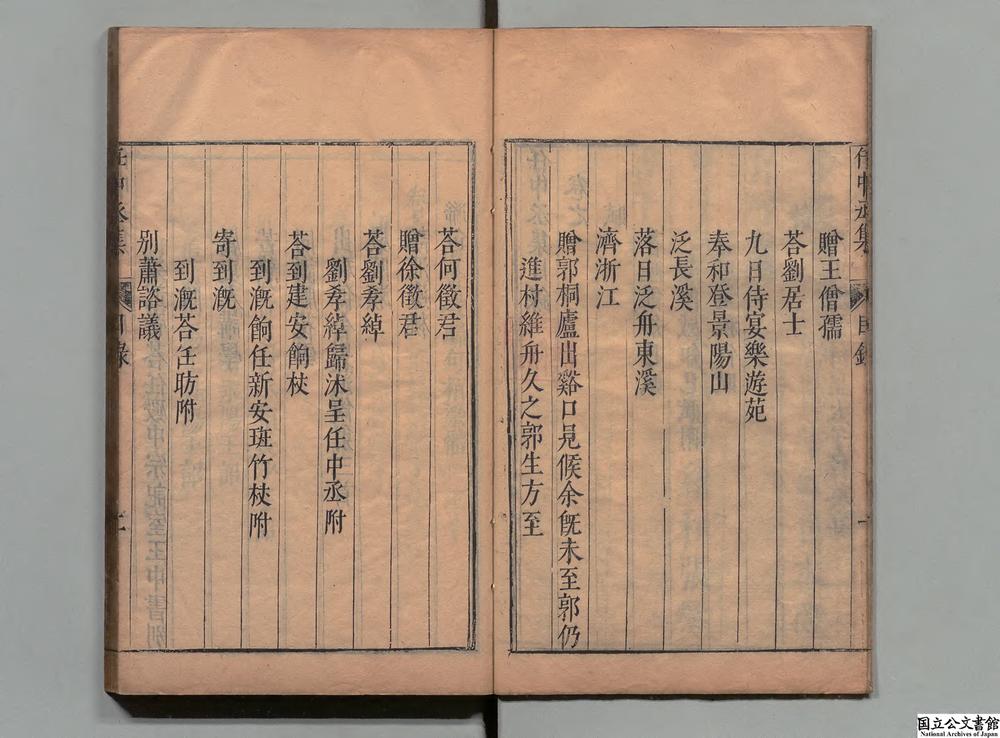 贈王僧孺
荅劉居士
九日侍宴樂遊苑
奉和登景陽山
泛長溪
落日泛舟東溪
濟浙江
贈郭桐廬出谿口見候余旣未至郭仍
進村維舟久之郭生方至
荅何徵君
贈徐徵君
荅劉孝綽
劉孝綽歸沐呈任中丞附
荅到建安餉杖
到漑餉任新安班竹杖附
寄到漑
到漑荅任昉附
别蕭諮議
国立公文書館
National Archives of Japan